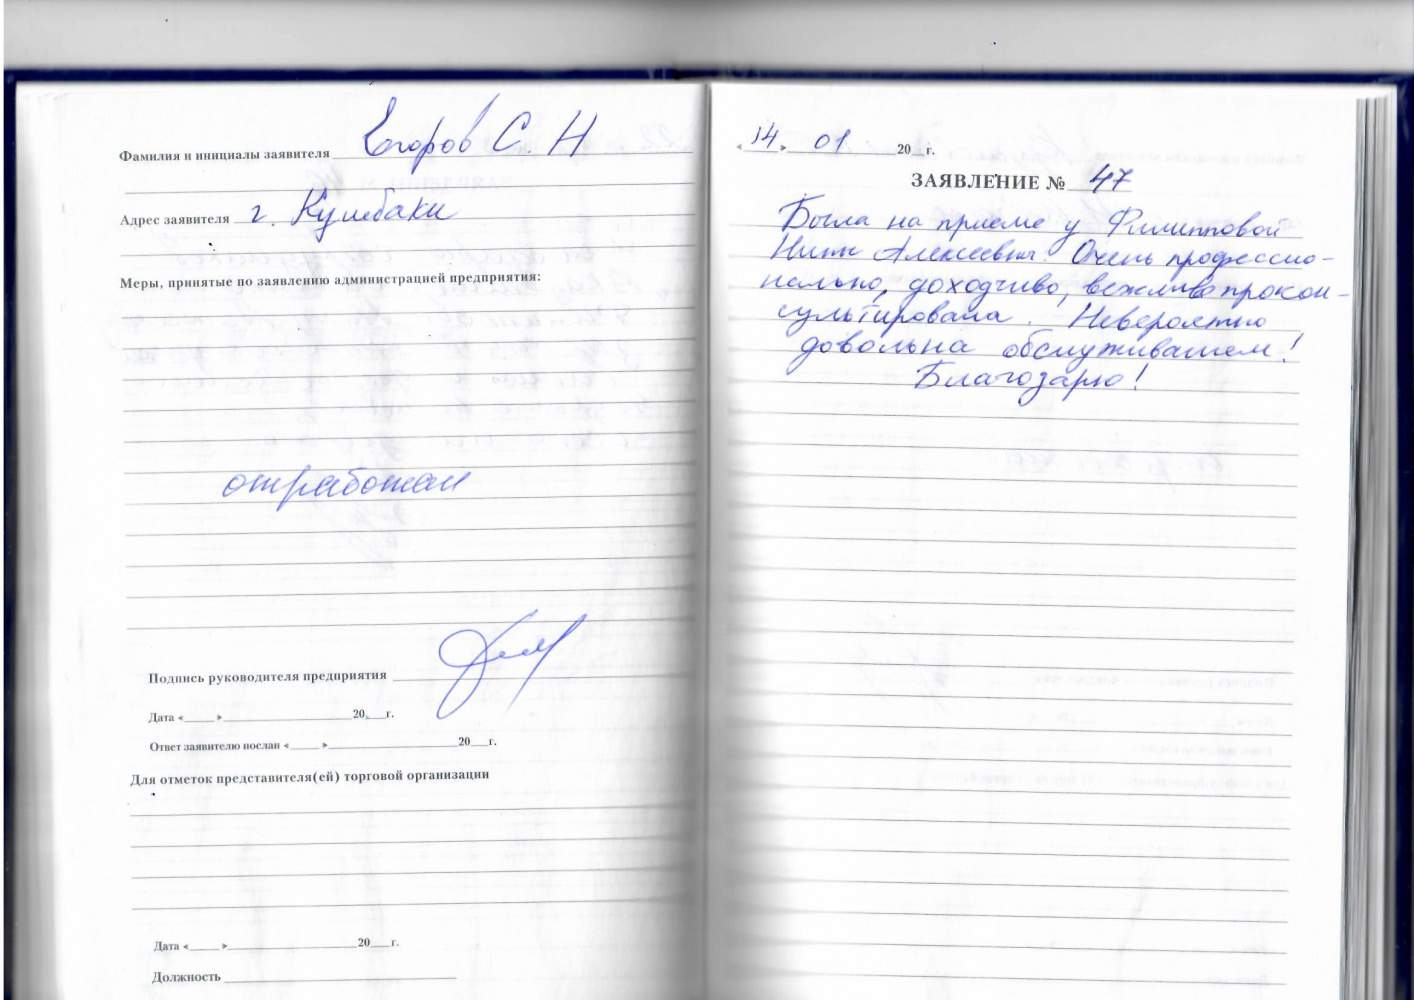 Фамилия и инициалы заявителя Егоров С. Н
Адрес заявителя г. Кулебаки
Меры, принятые по заявлению администрацией предприятия:
отработан
Подпись руководителя предприятия
Дата «___» ___ 20__ г.
Ответ заявителю послан «___» ___ 20__ г.
Для отметок представителя(ей) торговой организации
Дата «___» ___ 20__ г.
Должность
«14» 01 20__ г.
ЗАЯВЛЕНИЕ № 47
Была на приеме у Филипповой
Нины Алексеевны. Очень профессио-
нально, доходчиво, вежливо прокон-
сультировала. Невероятно
довольна обслуживанием!
Благодарю!